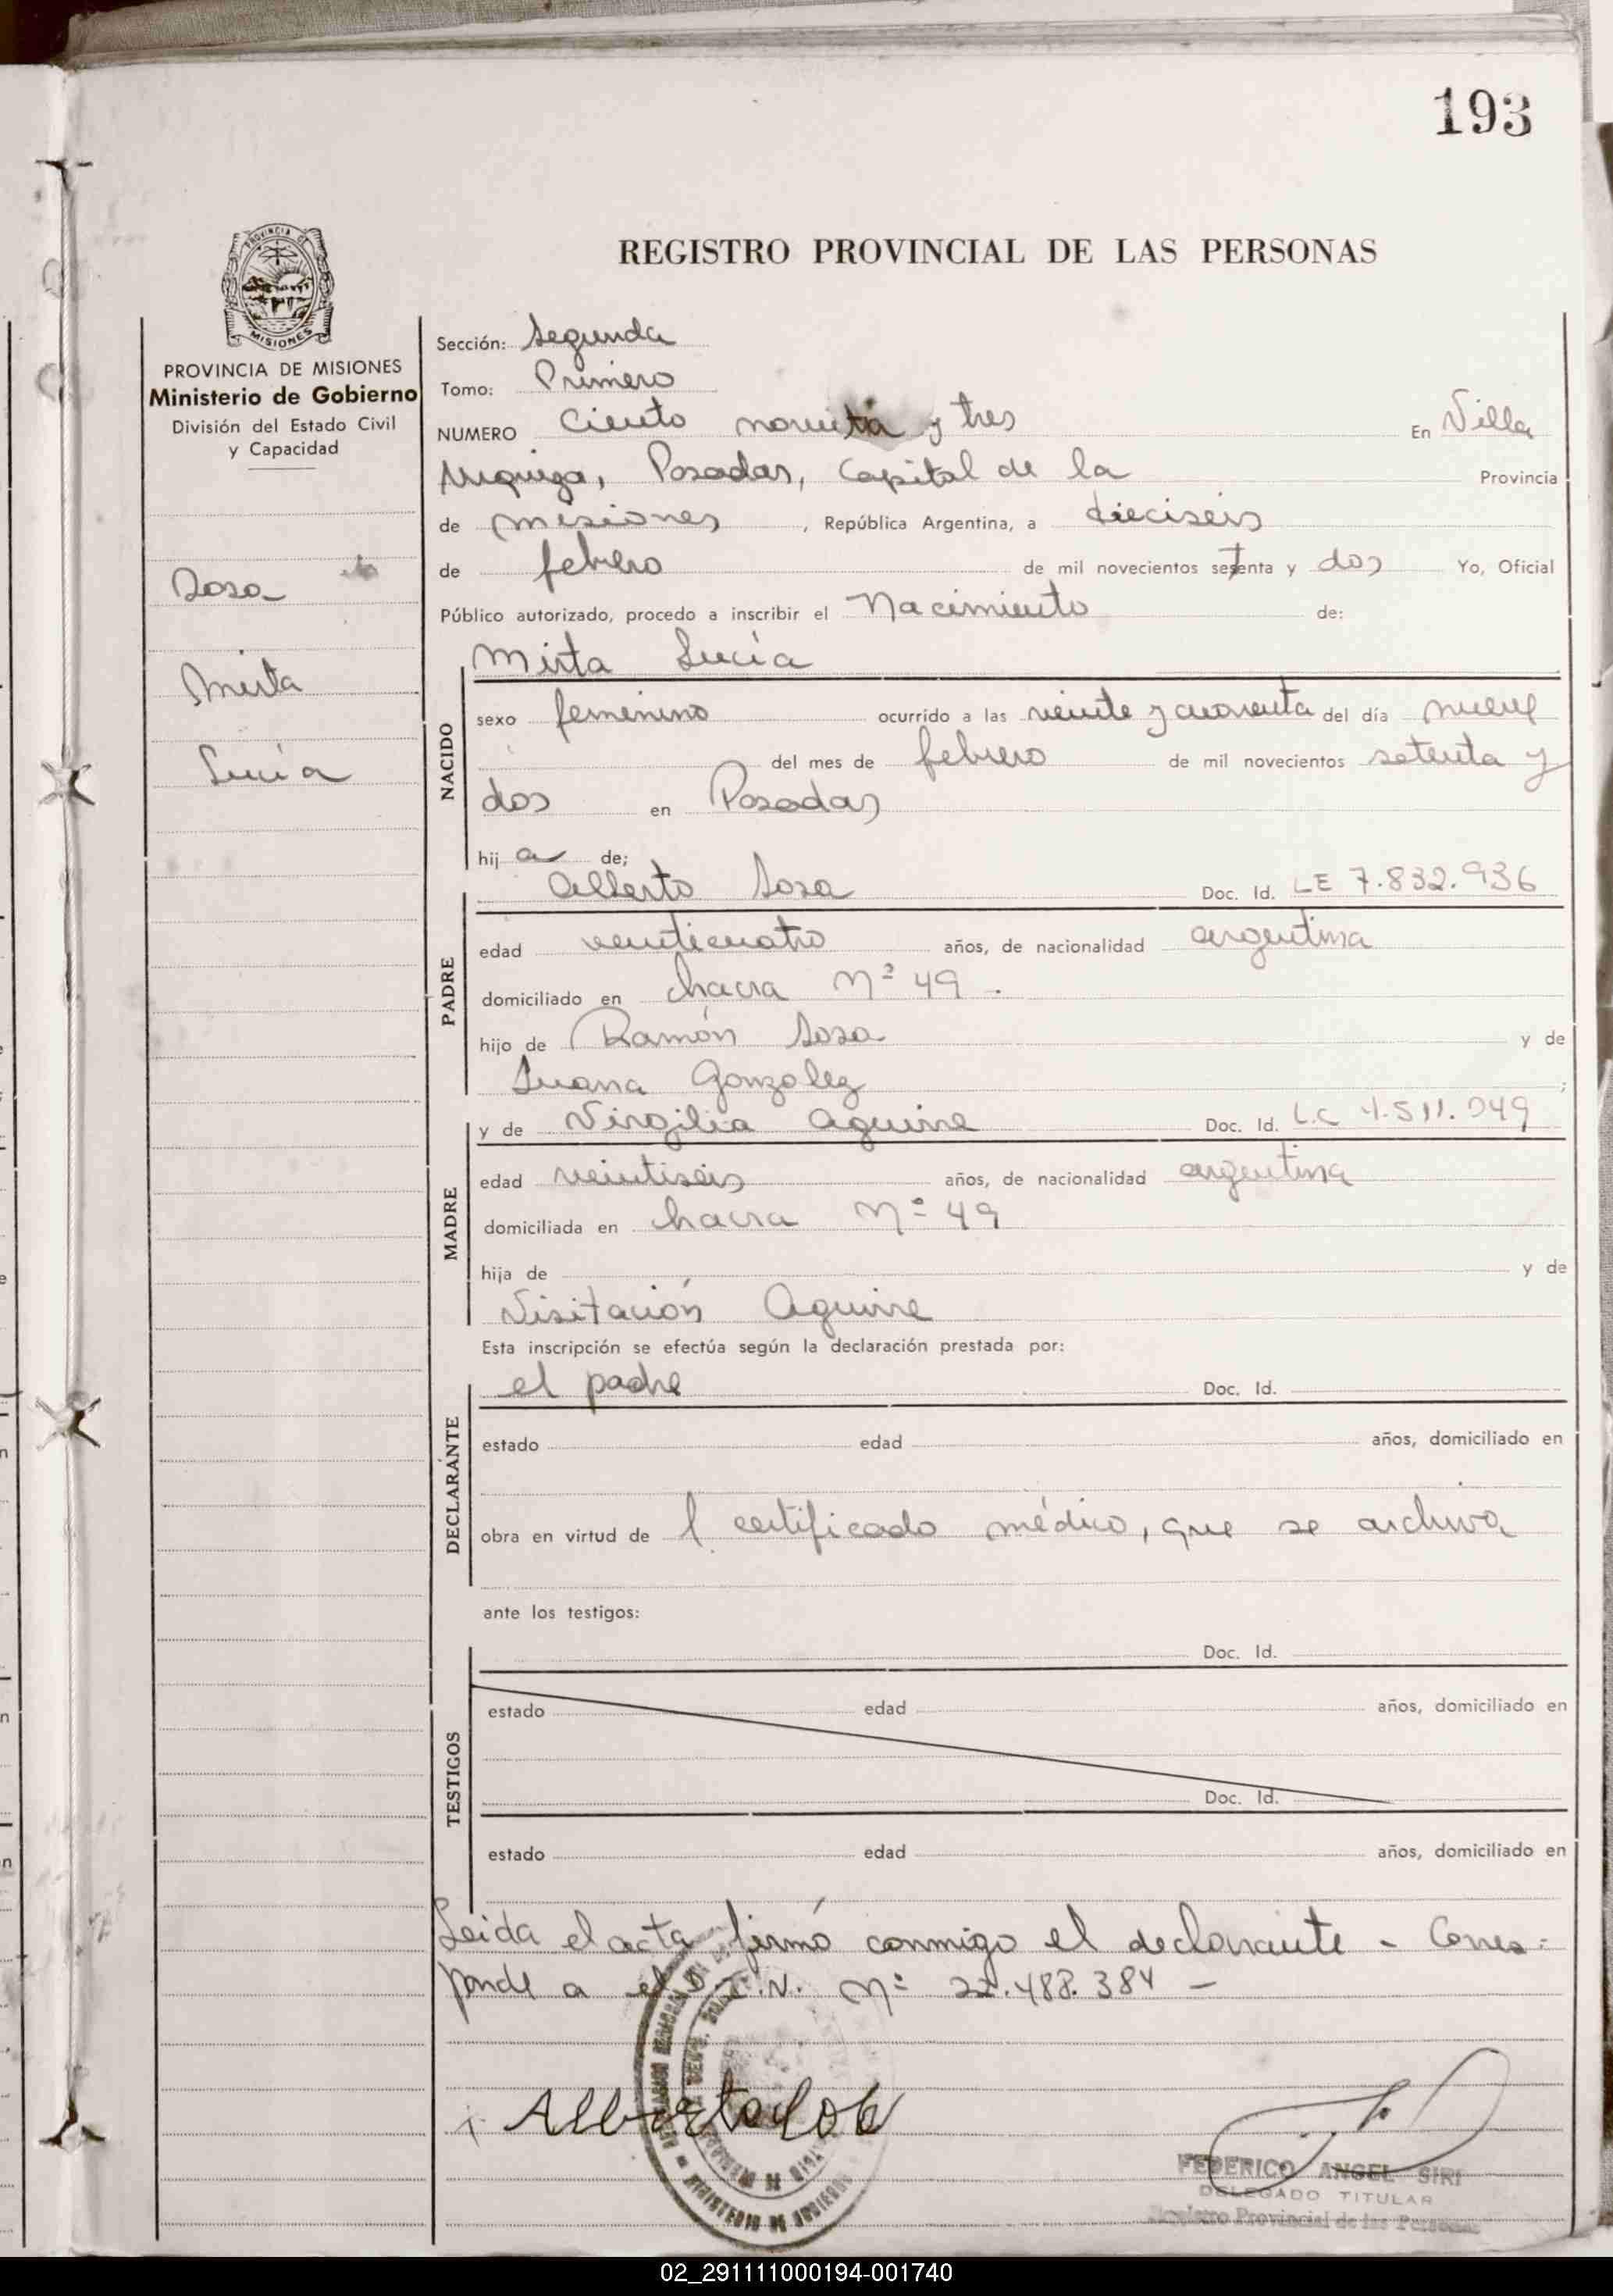 193
REGISTRO PROVINCIAL DE LAS PERSONAS
PROVINCIA DE
MISIONES
PROVINCIA DE MISIONES
Ministerio de Gobierno
División del Estado Civil
y Capacidad
Sosa
Mirta
Lucía
Sección: Segunda
Tomo: Primero
NUMERO Ciento noventa y tres En Villa
Urquiza, Posadas, Capital de la Provincia
de misiones, República Argentina, a dieciseis
de febrero de mil novecientos setenta y dos Yo, Oficial
Público autorizado, procedo a inscribir el Nacimiento de:
NACIDO
Mirta Lucía
sexo femenino ocurrido a las veinte y cuarenta del día nueve
del mes de febrero de mil novecientos setenta y
dos en Posadas
hij a de;
PADRE
Alberto Sosa Doc. Id. LE 7.832.936
edad veinticuatro años, de nacionalidad argentina
domiciliado en chacra Nº 49.
hijo de Ramón Sosa y de
Juana Gonzalez ;
MADRE
y de Virgilia Aguirre Doc. Id. L.C 4.511.049
edad veintiseis años, de nacionalidad argentina
domiciliada en chacra Nº 49
hija de y de
Visitación Aguirre
Esta inscripción se efectúa según la declaración prestada por:
DECLARANTE
el padre Doc. Id.
estado edad años, domiciliado en
obra en virtud de l certificado médico, que se archiva
ante los testigos:
TESTIGOS
Doc. Id.
estado edad años, domiciliado en
Doc. Id.
estado edad años, domiciliado en
Leida el acta firmó conmigo el declarante - Corres=
ponde a el D.I.N. Nº 22.488.384 -
Alberto Sosa
FEDERICO ANGEL SIRI
DELEGADO TITULAR
Registro Provincial de las Personas
02_291111000194-001740